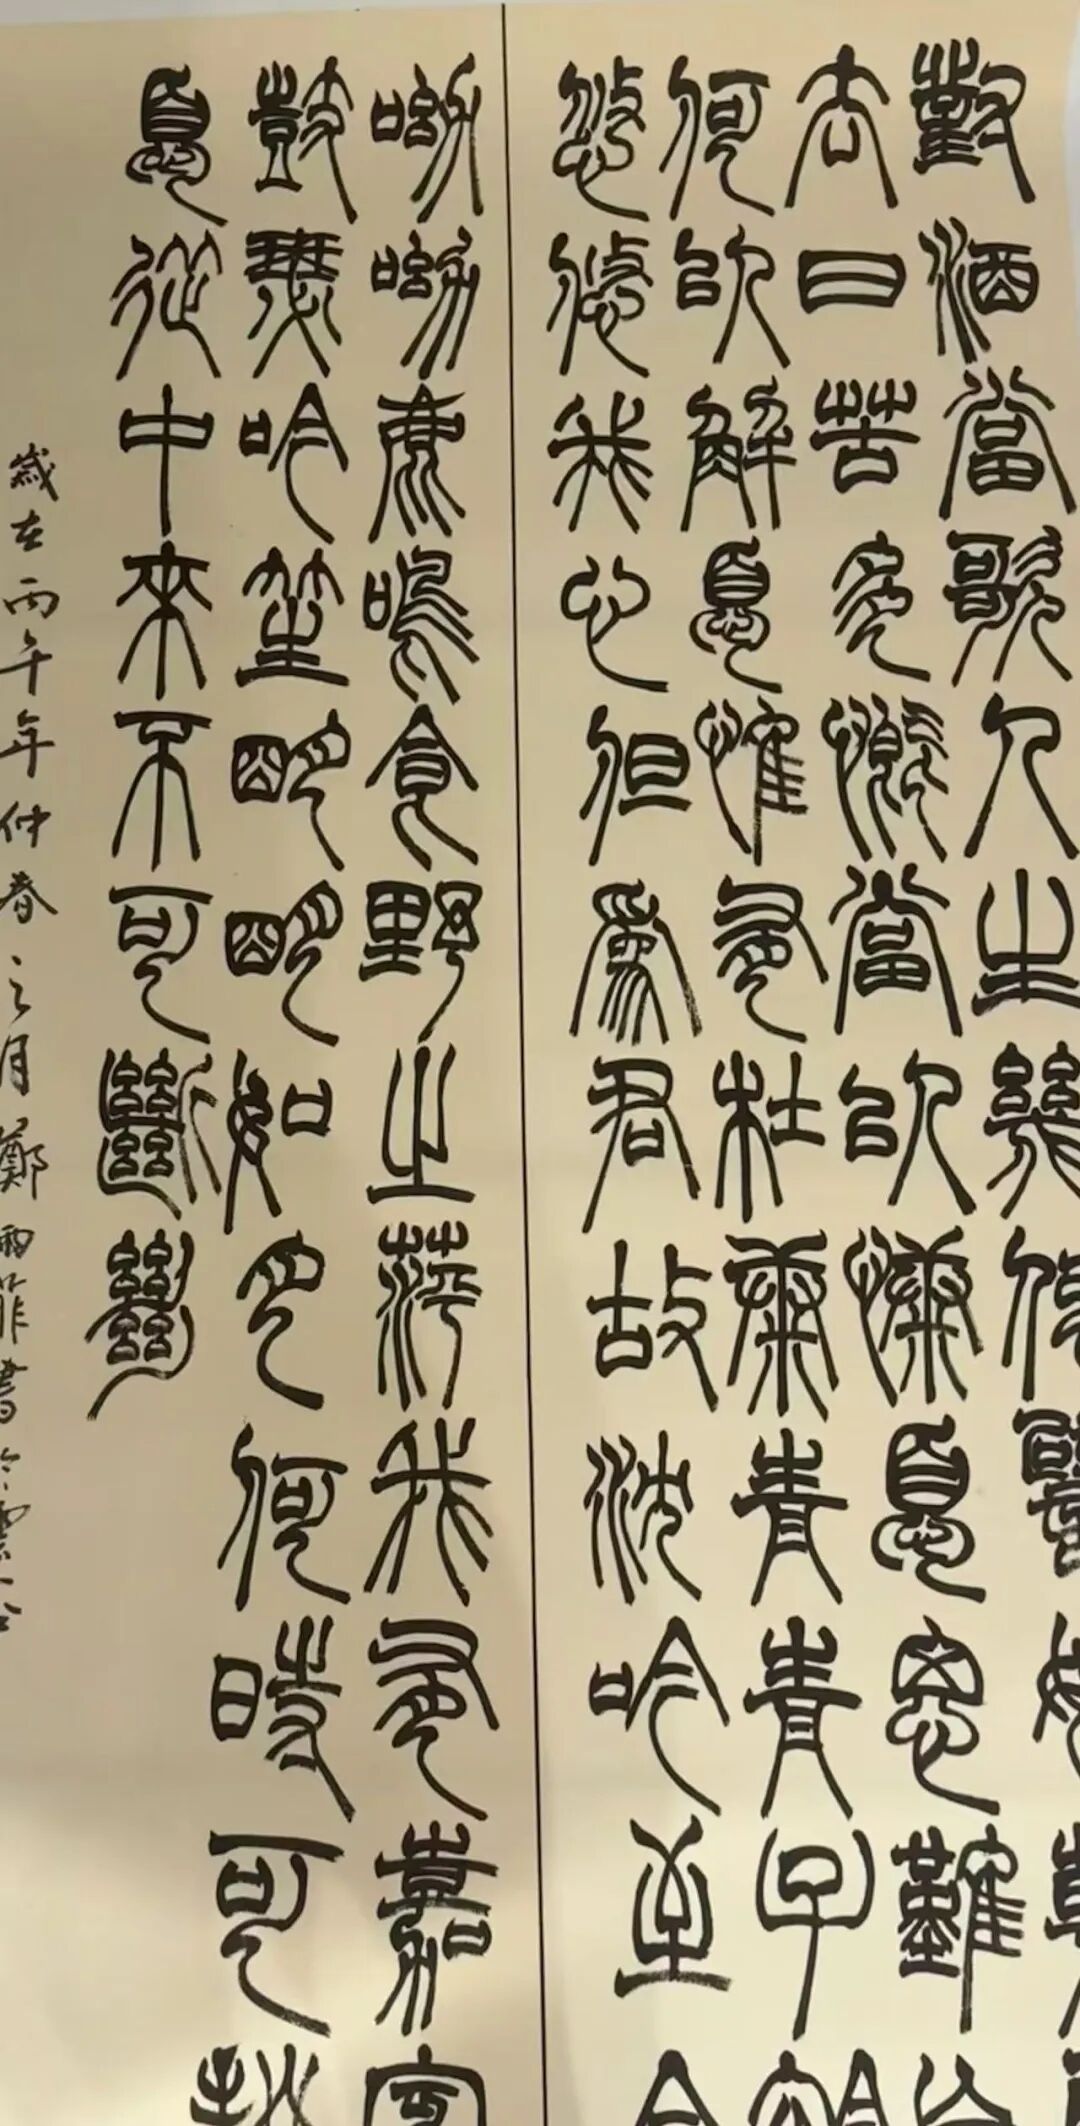 對酒當歌人生幾何譬如朝
去日苦多慨當以慷憂思難
何以解憂惟有杜康青青子
悠悠我心但為君故沈吟至今
呦呦鹿鳴食野之苹我有嘉賓
鼓瑟吟笙明明如月何時可掇
憂從中來不可斷絕
歲在丙午年仲春之月鄭雨菲書於雲